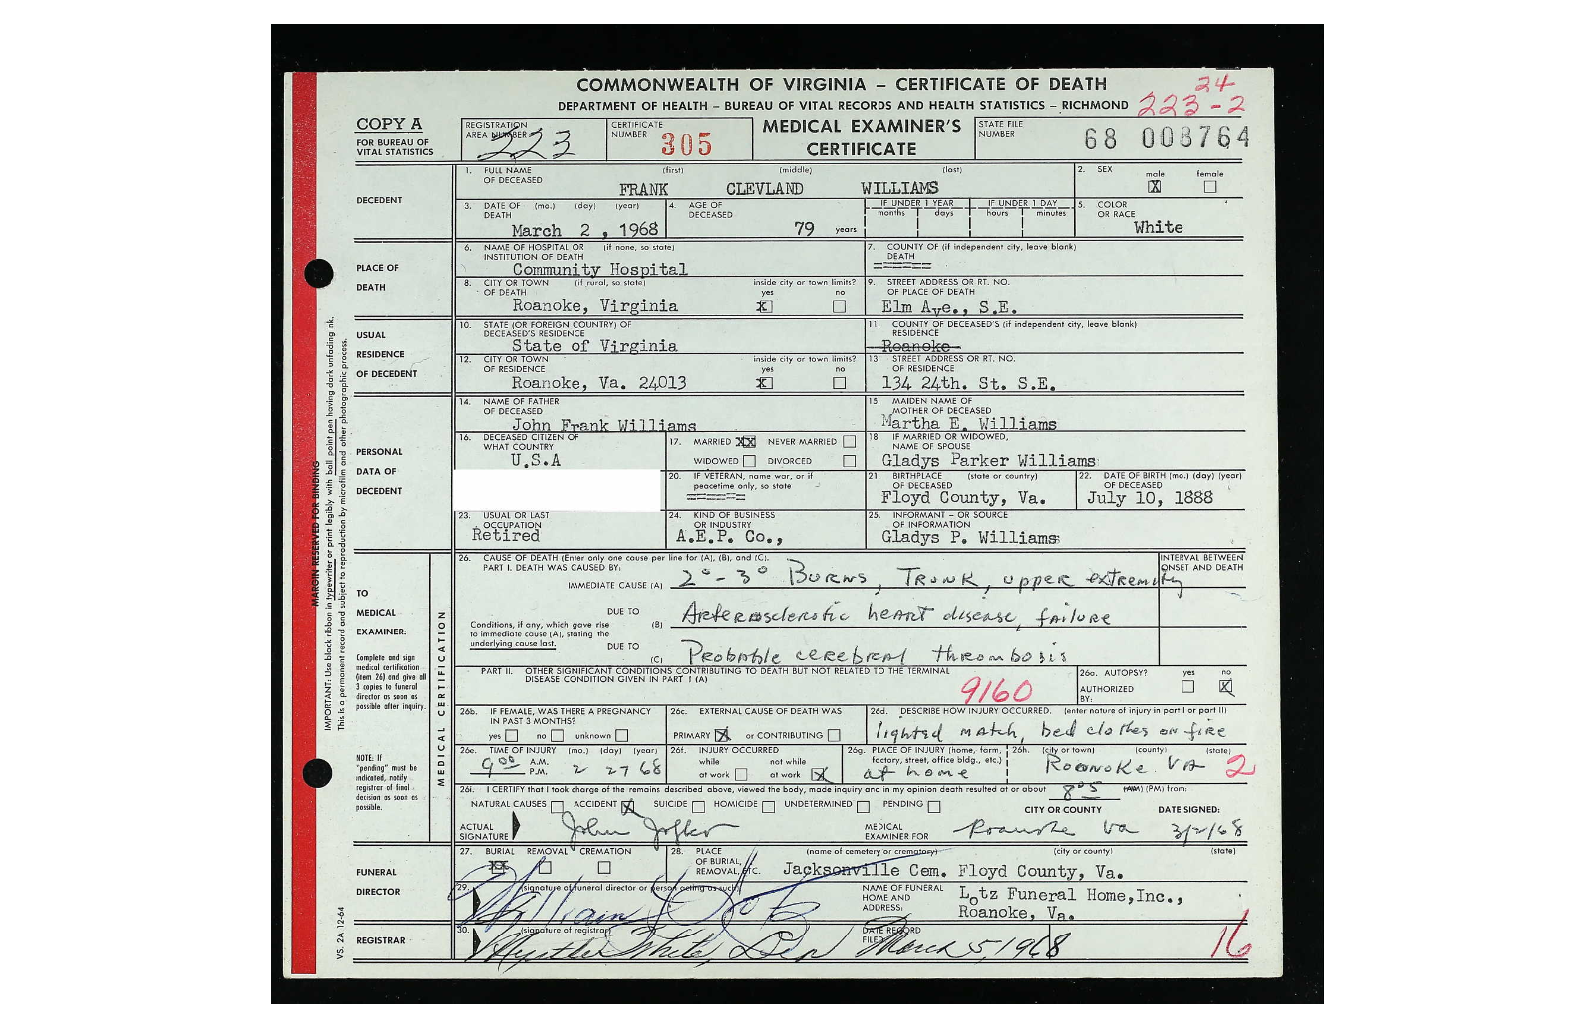 COMMONWEALTH OF VIRGINIA – CERTIFICATE OF DEATH 24
DEPARTMENT OF HEALTH – BUREAU OF VITAL RECORDS AND HEALTH STATISTICS – RICHMOND 223-2
COPY A
FOR BUREAU OF VITAL STATISTICS
REGISTRATION AREA NUMBER 223
CERTIFICATE NUMBER 305
MEDICAL EXAMINER'S CERTIFICATE
STATE FILE NUMBER 68 008764
DECEDENT
1. FULL NAME OF DECEASED (first) (middle) (last)
FRANK CLEVLAND WILLIAMS
2. SEX male X female
3. DATE OF DEATH (mo.) (day) (year)
March 2, 1968
4. AGE OF DECEASED 79 years
IF UNDER 1 YEAR months days
IF UNDER 1 DAY hours minutes
5. COLOR OR RACE
White
PLACE OF DEATH
6. NAME OF HOSPITAL OR INSTITUTION OF DEATH (if none, so state)
Community Hospital
7. COUNTY OF DEATH (if independent city, leave blank)
======
8. CITY OR TOWN OF DEATH (if rural, so state) inside city or town limits? yes X no
Roanoke, Virginia
9. STREET ADDRESS OR RT. NO. OF PLACE OF DEATH
Elm Ave., S.E.
USUAL RESIDENCE OF DECEDENT
10. STATE (OR FOREIGN COUNTRY) OF DECEASED'S RESIDENCE
State of Virginia
11 COUNTY OF DECEASED'S RESIDENCE (if independent city, leave blank)
Roanoke
12. CITY OR TOWN OF RESIDENCE inside city or town limits? yes X no
Roanoke, Va. 24013
13 STREET ADDRESS OR RT. NO. OF RESIDENCE
134 24th. St. S.E.
PERSONAL DATA OF DECEDENT
14. NAME OF FATHER OF DECEASED
John Frank Williams
15 MAIDEN NAME OF MOTHER OF DECEASED
Martha E. Williams
16. DECEASED CITIZEN OF WHAT COUNTRY
U.S.A
17. MARRIED XX NEVER MARRIED
WIDOWED DIVORCED
18 IF MARRIED OR WIDOWED, NAME OF SPOUSE
Gladys Parker Williams
20. IF VETERAN, name war, or if peacetime only, so state
=======
21 BIRTHPLACE OF DECEASED (state or country)
Floyd County, Va.
22. DATE OF BIRTH OF DECEASED (mo.) (day) (year)
July 10, 1888
23. USUAL OR LAST OCCUPATION
Retired
24. KIND OF BUSINESS OR INDUSTRY
A.E.P. Co.,
25. INFORMANT – OR SOURCE OF INFORMATION
Gladys P. Williams
TO MEDICAL EXAMINER:
Complete and sign medical certification (item 26) and give all 3 copies to funeral director as soon as possible after inquiry.
NOTE: If "pending" must be indicated, notify registrar of final decision as soon as possible.
MEDICAL CERTIFICATION
26. CAUSE OF DEATH (Enter only one cause per line for (A), (B), and (C).
PART I. DEATH WAS CAUSED BY:
INTERVAL BETWEEN ONSET AND DEATH
IMMEDIATE CAUSE (A) 2° - 3° Burns, Trunk, upper extremity
Conditions, if any, which gave rise to immediate cause (A), stating the underlying cause last.
DUE TO (B) Arteriosclerotic heart disease, failure
DUE TO (C) Probable cerebral thrombosis
PART II. OTHER SIGNIFICANT CONDITIONS CONTRIBUTING TO DEATH BUT NOT RELATED TO THE TERMINAL DISEASE CONDITION GIVEN IN PART I (A)
9160
26a. AUTOPSY? yes no X
AUTHORIZED BY:
26b. IF FEMALE, WAS THERE A PREGNANCY IN PAST 3 MONTHS?
yes no unknown
26c. EXTERNAL CAUSE OF DEATH WAS
PRIMARY X or CONTRIBUTING
26d. DESCRIBE HOW INJURY OCCURRED. (enter nature of injury in part I or part II)
lighted match, bed clothes on fire
26e. TIME OF INJURY (mo.) (day) (year)
9 00 A.M. P.M. 2 27 68
26f. INJURY OCCURRED
while at work not while at work X
26g. PLACE OF INJURY (home, farm, factory, street, office bldg., etc.)
at home
26h. (city or town) (county) (state)
Roanoke VA 2
26i. I CERTIFY that I took charge of the remains described above, viewed the body, made inquiry and in my opinion death resulted at or about 8 05 (AM) (PM) from:
NATURAL CAUSES ACCIDENT X SUICIDE HOMICIDE UNDETERMINED PENDING CITY OR COUNTY DATE SIGNED:
ACTUAL SIGNATURE John
MEDICAL EXAMINER FOR Roanoke Va 3/2/68
FUNERAL DIRECTOR
27. BURIAL XX REMOVAL CREMATION
28. PLACE OF BURIAL, REMOVAL, ETC. (name of cemetery or crematory) (city or county) (state)
Jacksonville Cem. Floyd County, Va.
29. (signature of funeral director or person acting as such)
William Lotz
NAME OF FUNERAL HOME AND ADDRESS:
Lotz Funeral Home,Inc.,
Roanoke, Va.
REGISTRAR
30. (signature of registrar)
Myrtle White, Dep
DATE RECORD FILED March 5, 1968
16
MARGIN RESERVED FOR BINDING
IMPORTANT: Use black ribbon in typewriter or print legibly with ball point pen having dark unfading ink.
This is a permanent record and subject to reproduction by microfilm and other photographic process.
VS. 2A 12-64